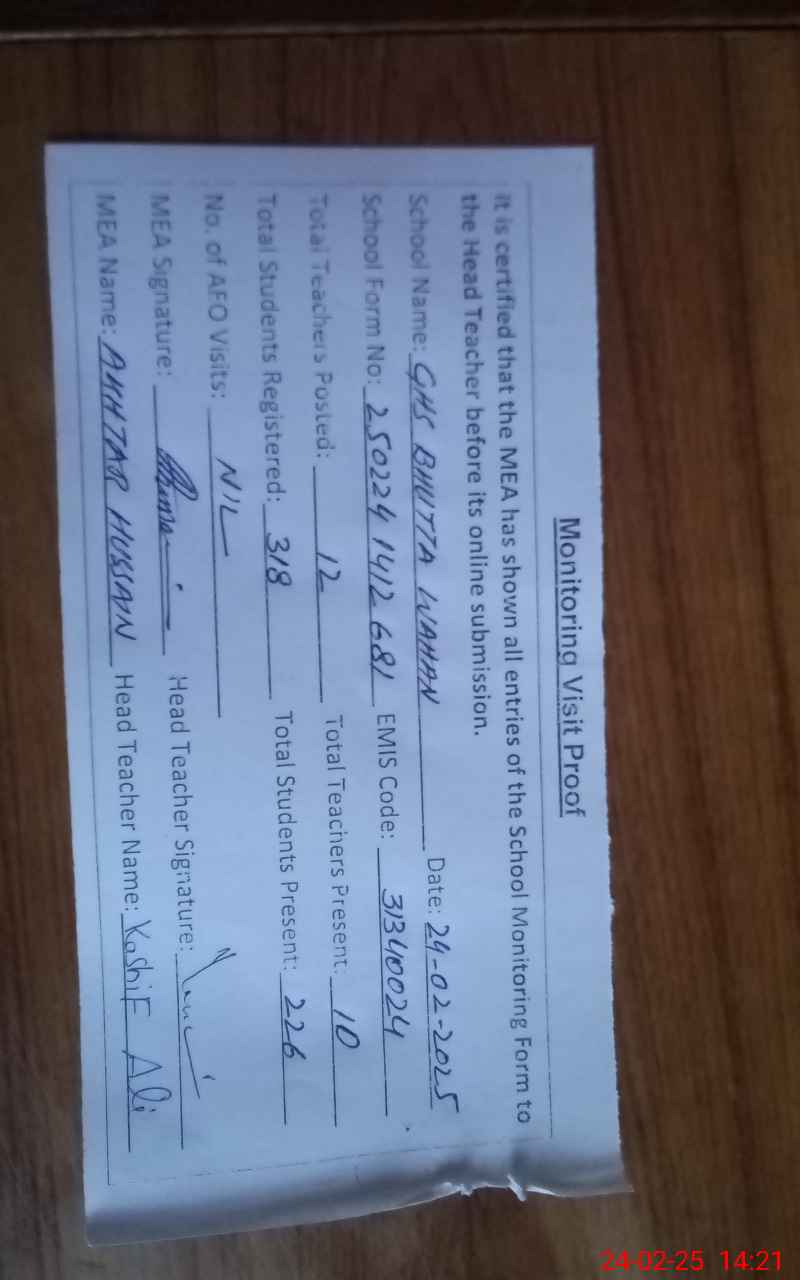 Monitoring Visit Proof
It is certified that the MEA has shown all entries of the School Monitoring Form to
the Head Teacher before its online submission.
School Name: GHS BHUTTA WAHAN Date: 24-02-2025
School Form No: 250224 1412 681 EMIS Code: 31340024
Total Teachers Posted: 12 Total Teachers Present: 10
Total Students Registered: 318 Total Students Present: 226
No. of AEO Visits: NIL
MEA Signature: Head Teacher Signature:
MEA Name: AKHTAR HUSSAIN Head Teacher Name: Kashif Ali
24-02-25 14:21